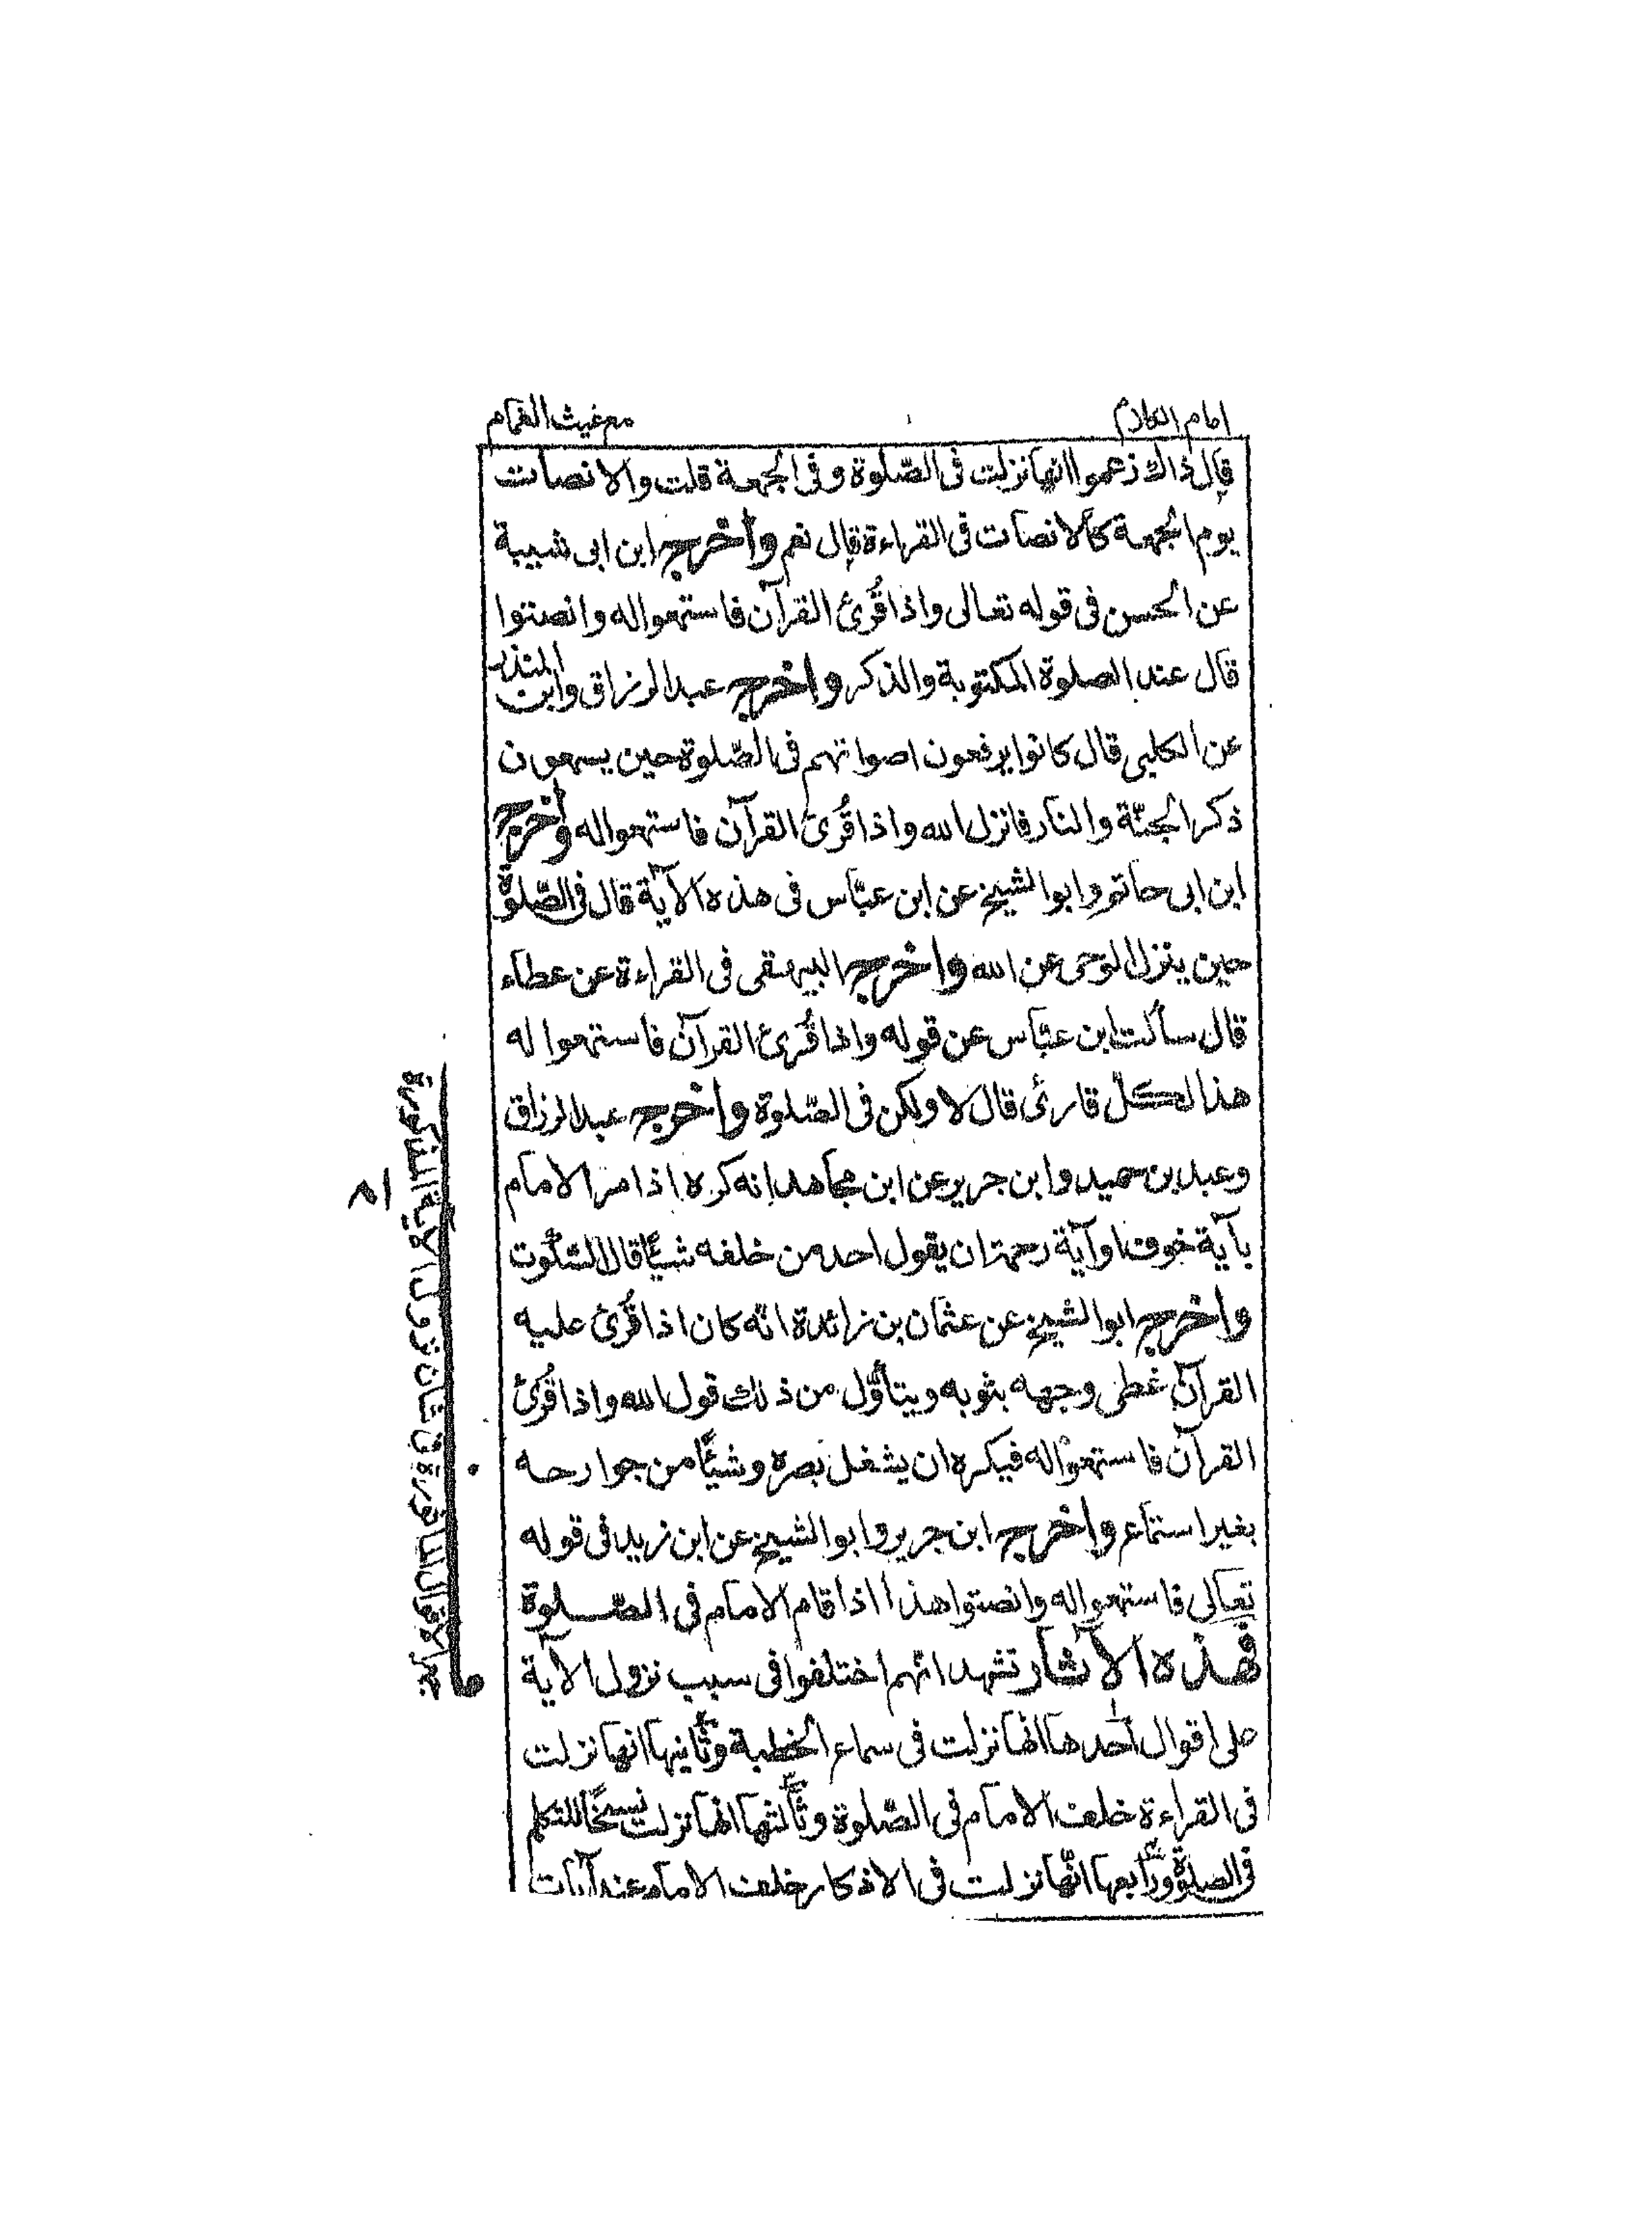 امام الكلام
مع غيث الغمام
قال ذاك زعموا انها نزلت فى الصّلوة وفى الجمعة قلت والانصات
يوم الجمعة كالانصات فى القراءة قال نعم واخرج ابن ابى شيبة
عن الحسن فى قوله تعالى واذا قُرئ القرآن فاستمعوا له وانصتوا
قال عند الصلوة المكتوبة والذكر واخرج عبد الرزاق وابن المنذر
عن الكلبى قال كانوا يرفعون اصواتهم فى الصّلوة حين يسمعون
ذكر الجنّة والنار فانزل الله واذا قُرئ القرآن فاستمعوا له واخرج
ابن ابى حاتم وابو الشيخ عن ابن عبّاس فى هذه الآية قال فى الصّلوة
حين ينزل الوحى عن الله واخرج البيهقى فى القراءة عن عطاء
قال سألت ابن عبّاس عن قوله واذا قُرئ القرآن فاستمعوا له
هذا لكلّ قارئ قال لا ولكن فى الصّلوة واخرج عبد الرزاق
وعبد بن حميد وابن جرير عن ابن مجاهد انه كره اذا مر الامام
بآية خوف او آية رحمة ان يقول احد من خلفه شيئًا قال السّكوت
واخرج ابو الشيخ عن عثمان بن زائدة انّه كان اذا قُرئ عليه
القرآن غطى وجهه بثوبه ويتأوّل من ذلك قول الله واذا قُرئ
القرآن فاستمعوا له فيكره ان يشغل بصره وشيئًا من جوارحه
بغير استماع واخرج ابن جرير وابو الشيخ عن ابن زيد فى قوله
تعالى فاستمعوا له وانصتوا هذا اذا قام الامام فى الصّلوة
فهذه الآثار تشهد انهم اختلفوا فى سبب نزول الآية
على اقوال احدها انها نزلت فى سماع الخطبة وثانيها انها نزلت
فى القراءة خلف الامام فى الصّلوة وثالثها انها نزلت نسخًا للتكلم
فى الصلوة ورابعها انّها نزلت فى الاذكار خلف الامام عند آيات